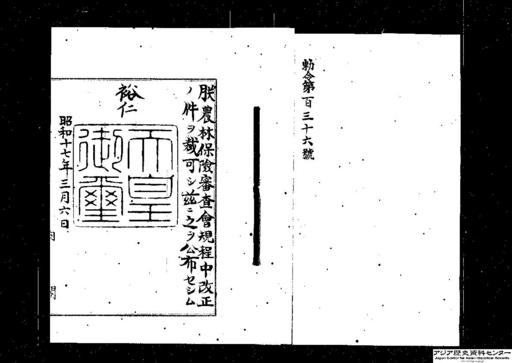 勅令第百三十六號
朕農林保險審査會規程中改正
ノ件ヲ裁可シ茲ニ之ヲ公布セシム
裕仁
天皇御璽
昭和十七年三月六日
アジア歴史資料センター
Japan Center for Asian Historical Records